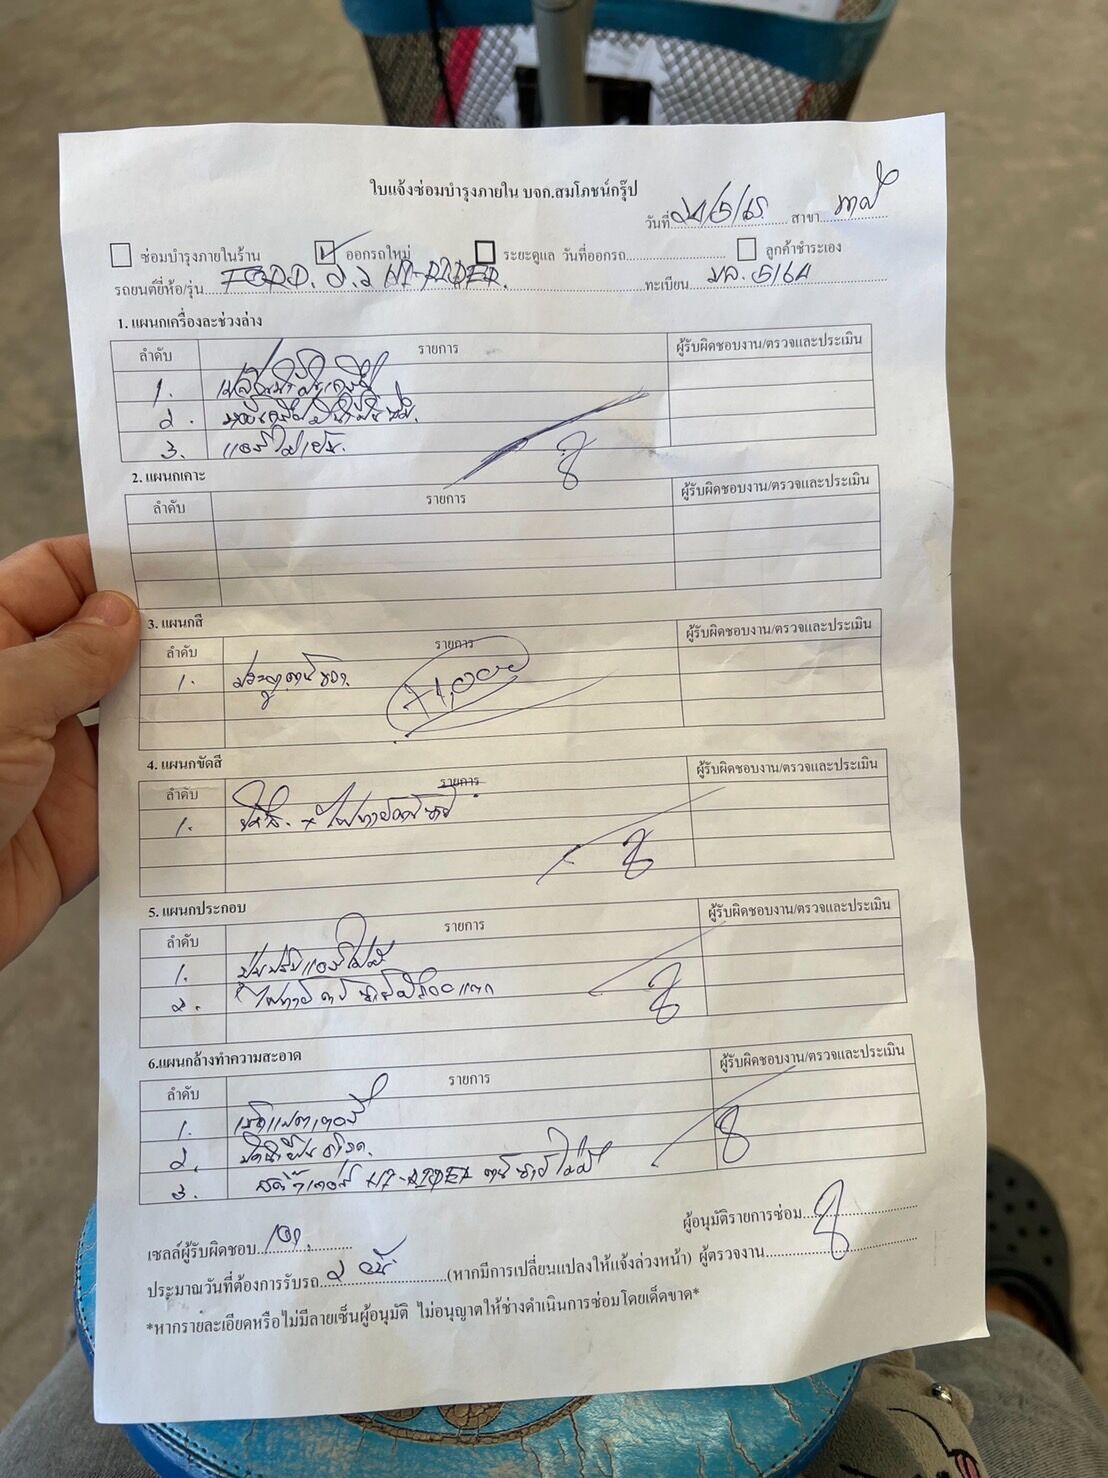 ใบแจ้งซ่อมบำรุงภายใน บจก.สมโภชน์กรุ๊ป
วันที่ 21/5/65 สาขา
ซ่อมบำรุงภายในร้าน ออกรถใหม่ ระยะดูแล วันที่ออกรถ ลูกค้าชำระเอง
รถยนต์ยี่ห้อ/รุ่น FORD. 2.2 HI-RIDER. ทะเบียน
1. แผนกเครื่องละช่วงล่าง
ลำดับ รายการ ผู้รับผิดชอบงาน/ตรวจและประเมิน
1. เปลี่ยนน้ำมันเครื่อง
2.
3. แอร์ไม่เย็น.
2. แผนกเคาะ
ลำดับ รายการ ผู้รับผิดชอบงาน/ตรวจและประเมิน
3. แผนกสี
ลำดับ รายการ ผู้รับผิดชอบงาน/ตรวจและประเมิน
1. ประตู
4. แผนกขัดสี
ลำดับ รายการ ผู้รับผิดชอบงาน/ตรวจและประเมิน
1. ไฟท้าย
5. แผนกประกอบ
ลำดับ รายการ ผู้รับผิดชอบงาน/ตรวจและประเมิน
1. ปุ่มปรับแอร์ไม่มี
2. ไฟท้าย แตก
6.แผนกล้างทำความสะอาด
ลำดับ รายการ ผู้รับผิดชอบงาน/ตรวจและประเมิน
1.
2.
3. สติ๊กเกอร์ HI-RIDER ไม่มี
เซลล์ผู้รับผิดชอบ ผู้อนุมัติรายการซ่อม
ประมาณวันที่ต้องการรับรถ 2 วัน (หากมีการเปลี่ยนแปลงให้แจ้งล่วงหน้า) ผู้ตรวจงาน
*หากรายละเอียดหรือไม่มีลายเซ็นผู้อนุมัติ ไม่อนุญาตให้ช่างดำเนินการซ่อมโดยเด็ดขาด*